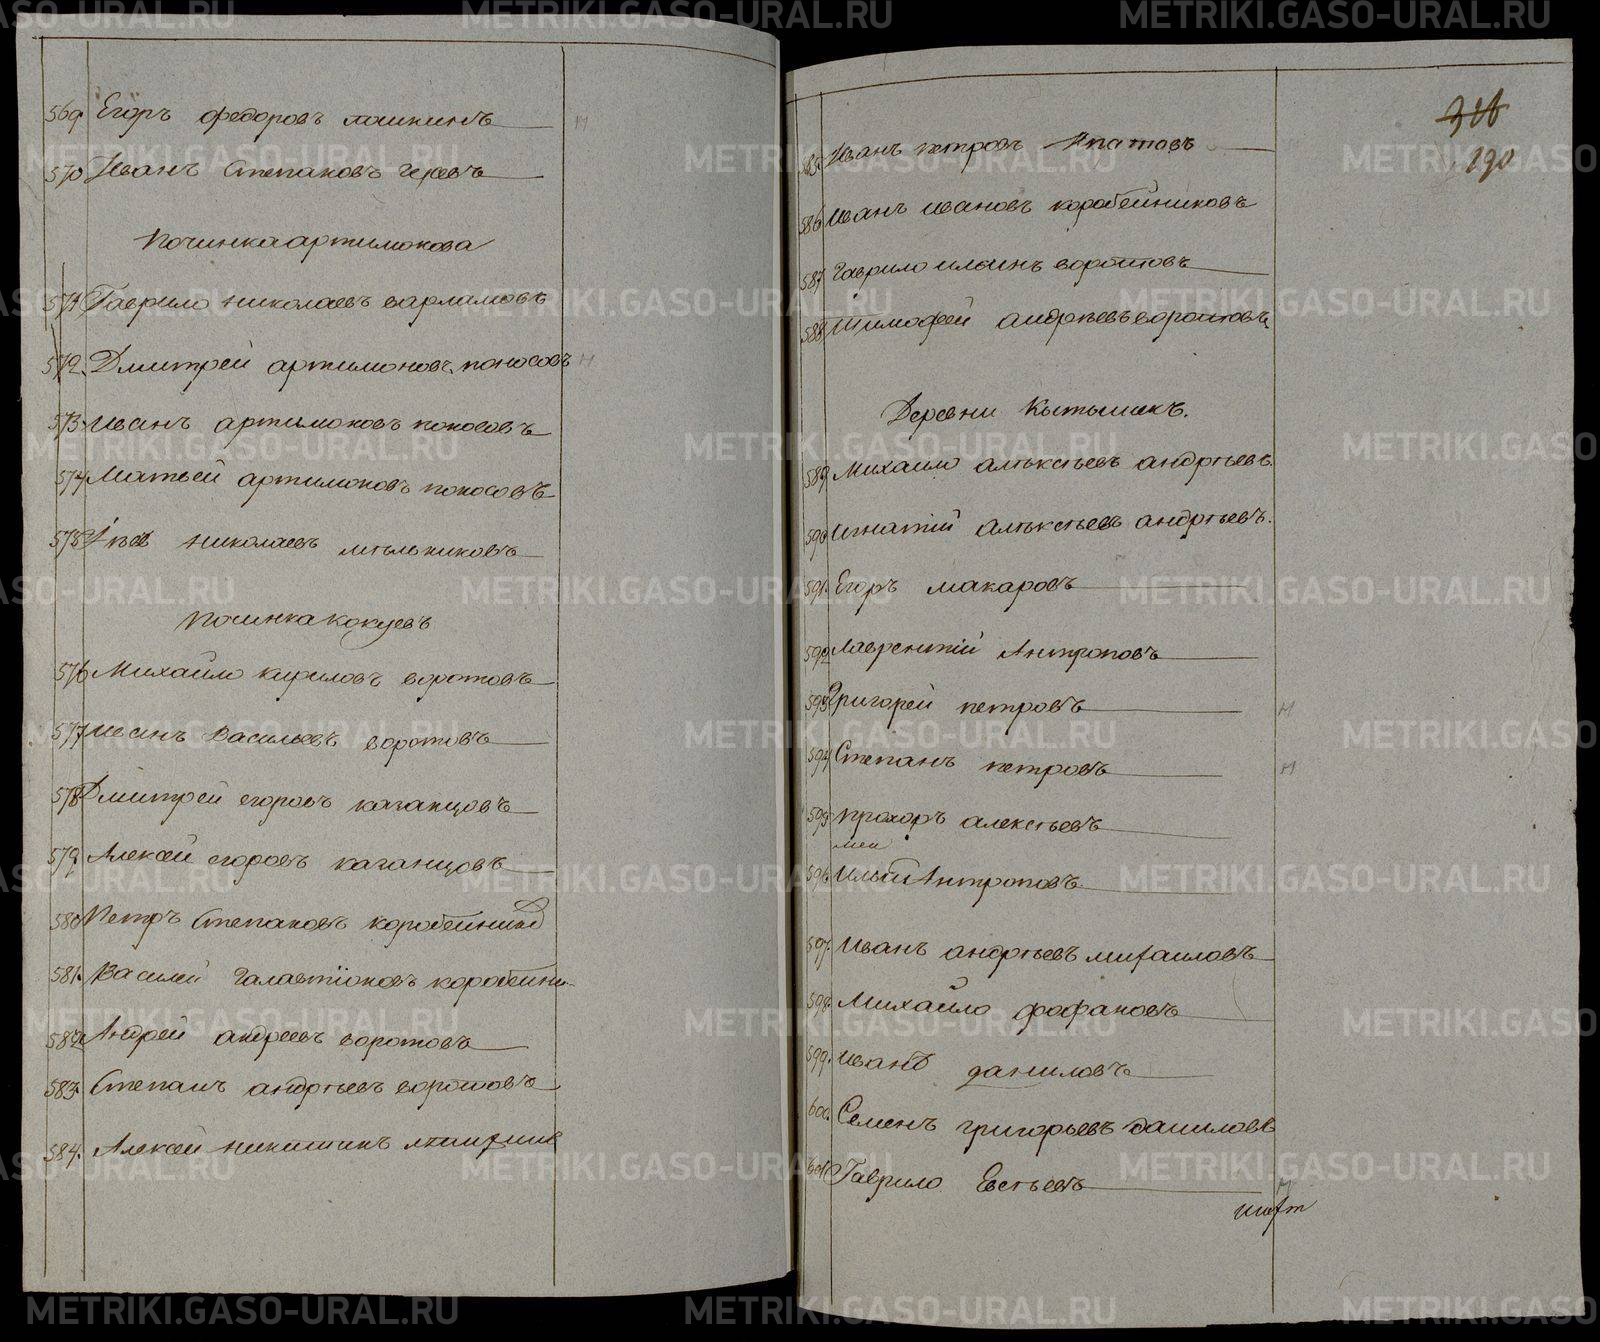 569. Егоръ федоровъ
570 Иванъ Степановъ
починка артимонова
571 Гаврило николаевъ варламовъ
572. Дмитрей артимоновъ поносовъ
573. иванъ артимоновъ поносовъ
574 Матвей артимоновъ поносовъ
575 николаевъ мѣльниковъ
починка кокуевъ
576 Михайло кириловъ воротовъ
577 иванъ васильевъ воротовъ
578 Дмитрей егоровъ казанцовъ
579. Алексей егоровъ казанцовъ
580 Петръ Степановъ коробейник
581. василей галактïоновъ коробейни-
582 Андрей андреевъ воротовъ
583. Степанъ андрѣевъ воротовъ
584. Алексей никитинъ
318
190
585. Иванъ петровъ Ипатовъ
586 иванъ ивановъ коробейниковъ
587 Гаврило ильинъ воротовъ
588 Тимофей андрѣевъ воротовъ
Деревни
589 Михаило алѣксѣевъ андрѣевъ.
590 игнатiй алѣксѣевъ андрѣевъ.
591. Егоръ макаровъ
592 Лаврентiй Антроповъ
593 Григорей петровъ
594 Степанъ петровъ
595 прохоръ алексѣевъ
596. Антроповъ
597. иванъ андрѣевъ михаиловъ
598. Михайло фофановъ
599. иванъ даниловъ
600. Семенъ григорьевъ даниловъ
601 Гаврило Евсѣевъ